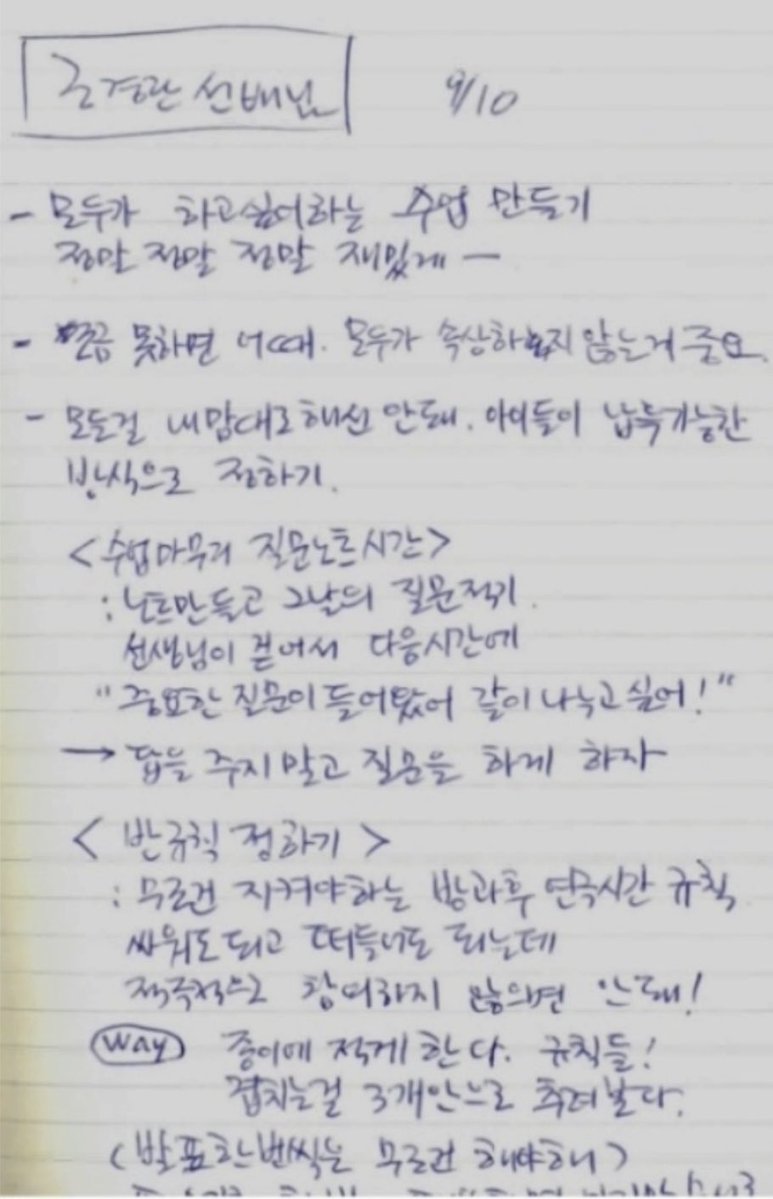 근경란 선배님 9/10
- 모두가 하고싶어하는 수업 만들기
정말 정말 정말 재밌게 ー
- 조금 못하면 어때. 모두가 속상하지 않는게 중요.
- 모든걸 내맘대로해선 안돼. 아이들이 납득가능한
방식으로 정하기.
<수업마무리 질문노트시간>
: 노트만들고 그날의 질문적기.
선생님이 걷어서 다음시간에
"중요한 질문이 들어왔어 같이 나누고 싶어!"
→ 답을 주지말고 질문을 하게 하자
< 반규칙 정하기 >
: 무조건 지켜야하는 방과후 연극시간 규칙
싸워도 되고 떠들어도 되는데
적극적으로 참여하지 않으면 안돼!
way 종이에 적게 한다. 규칙들!
겹치는걸 3개안으로 추려본다.
(발표 한번씩은 무조건 해야해)